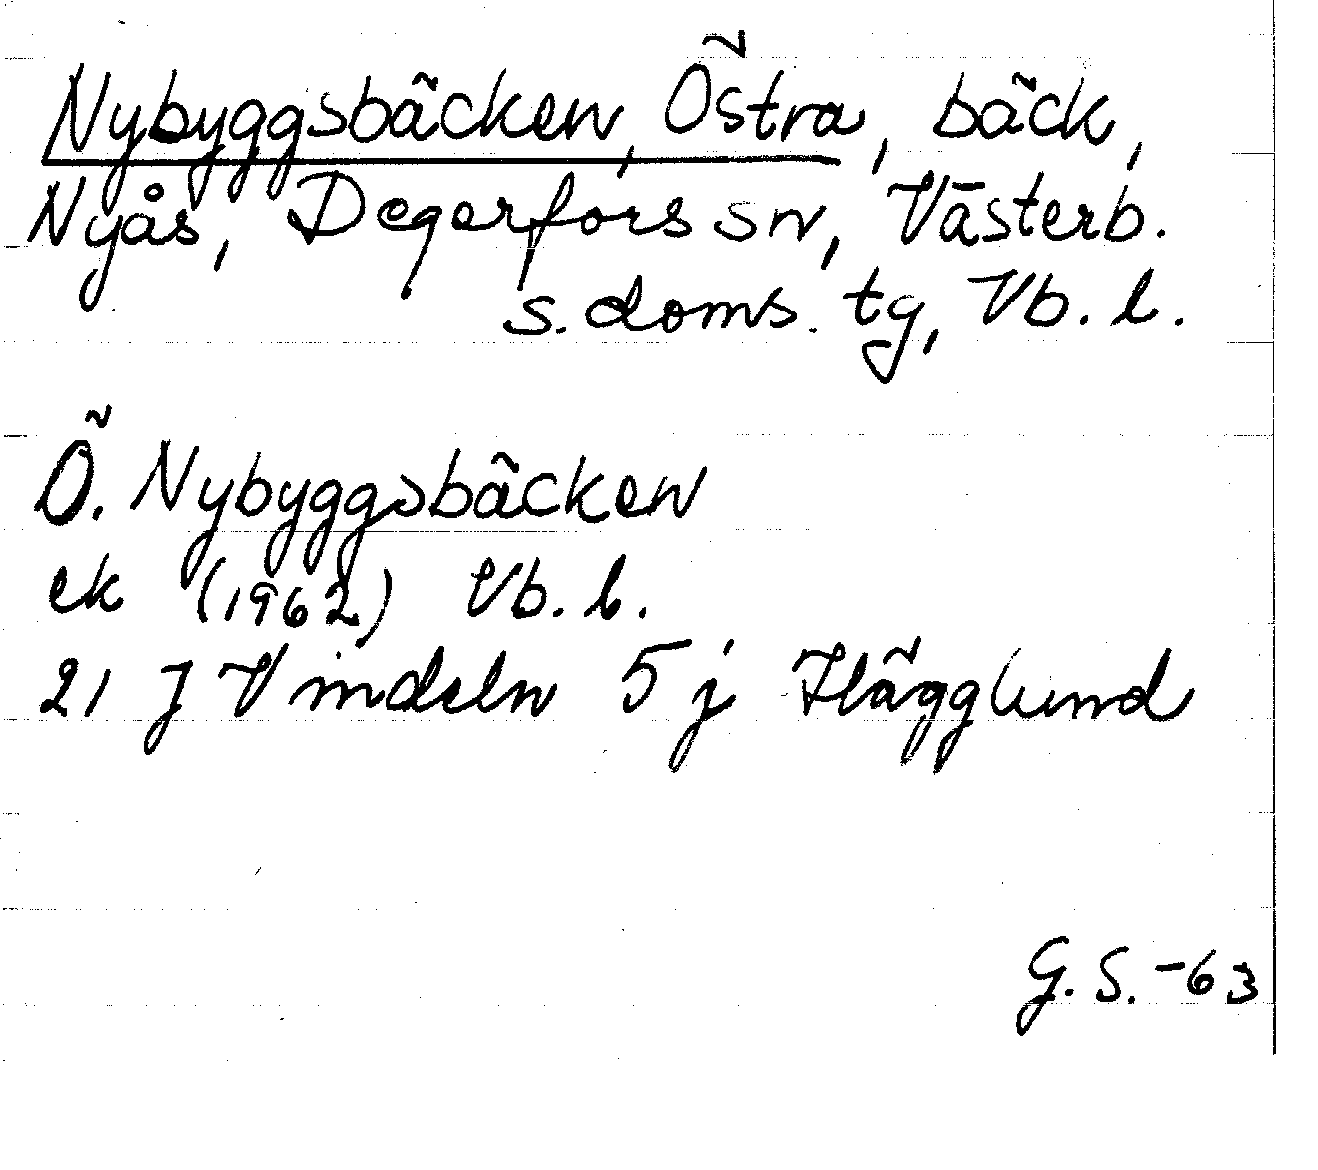 Nybyggsbäcken, Östra, bäck,
Nyås, Degerfors sn, Västerb.
s. doms. tg, Vb. l.
Ö. Nybyggsbäcken
ek (1962) Vb. l.
21 J Vindeln 5 j Hägglund
G. S. -63